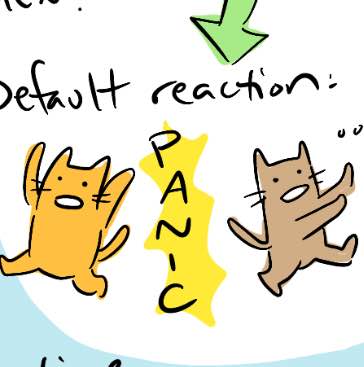 Default reaction:
PANIC